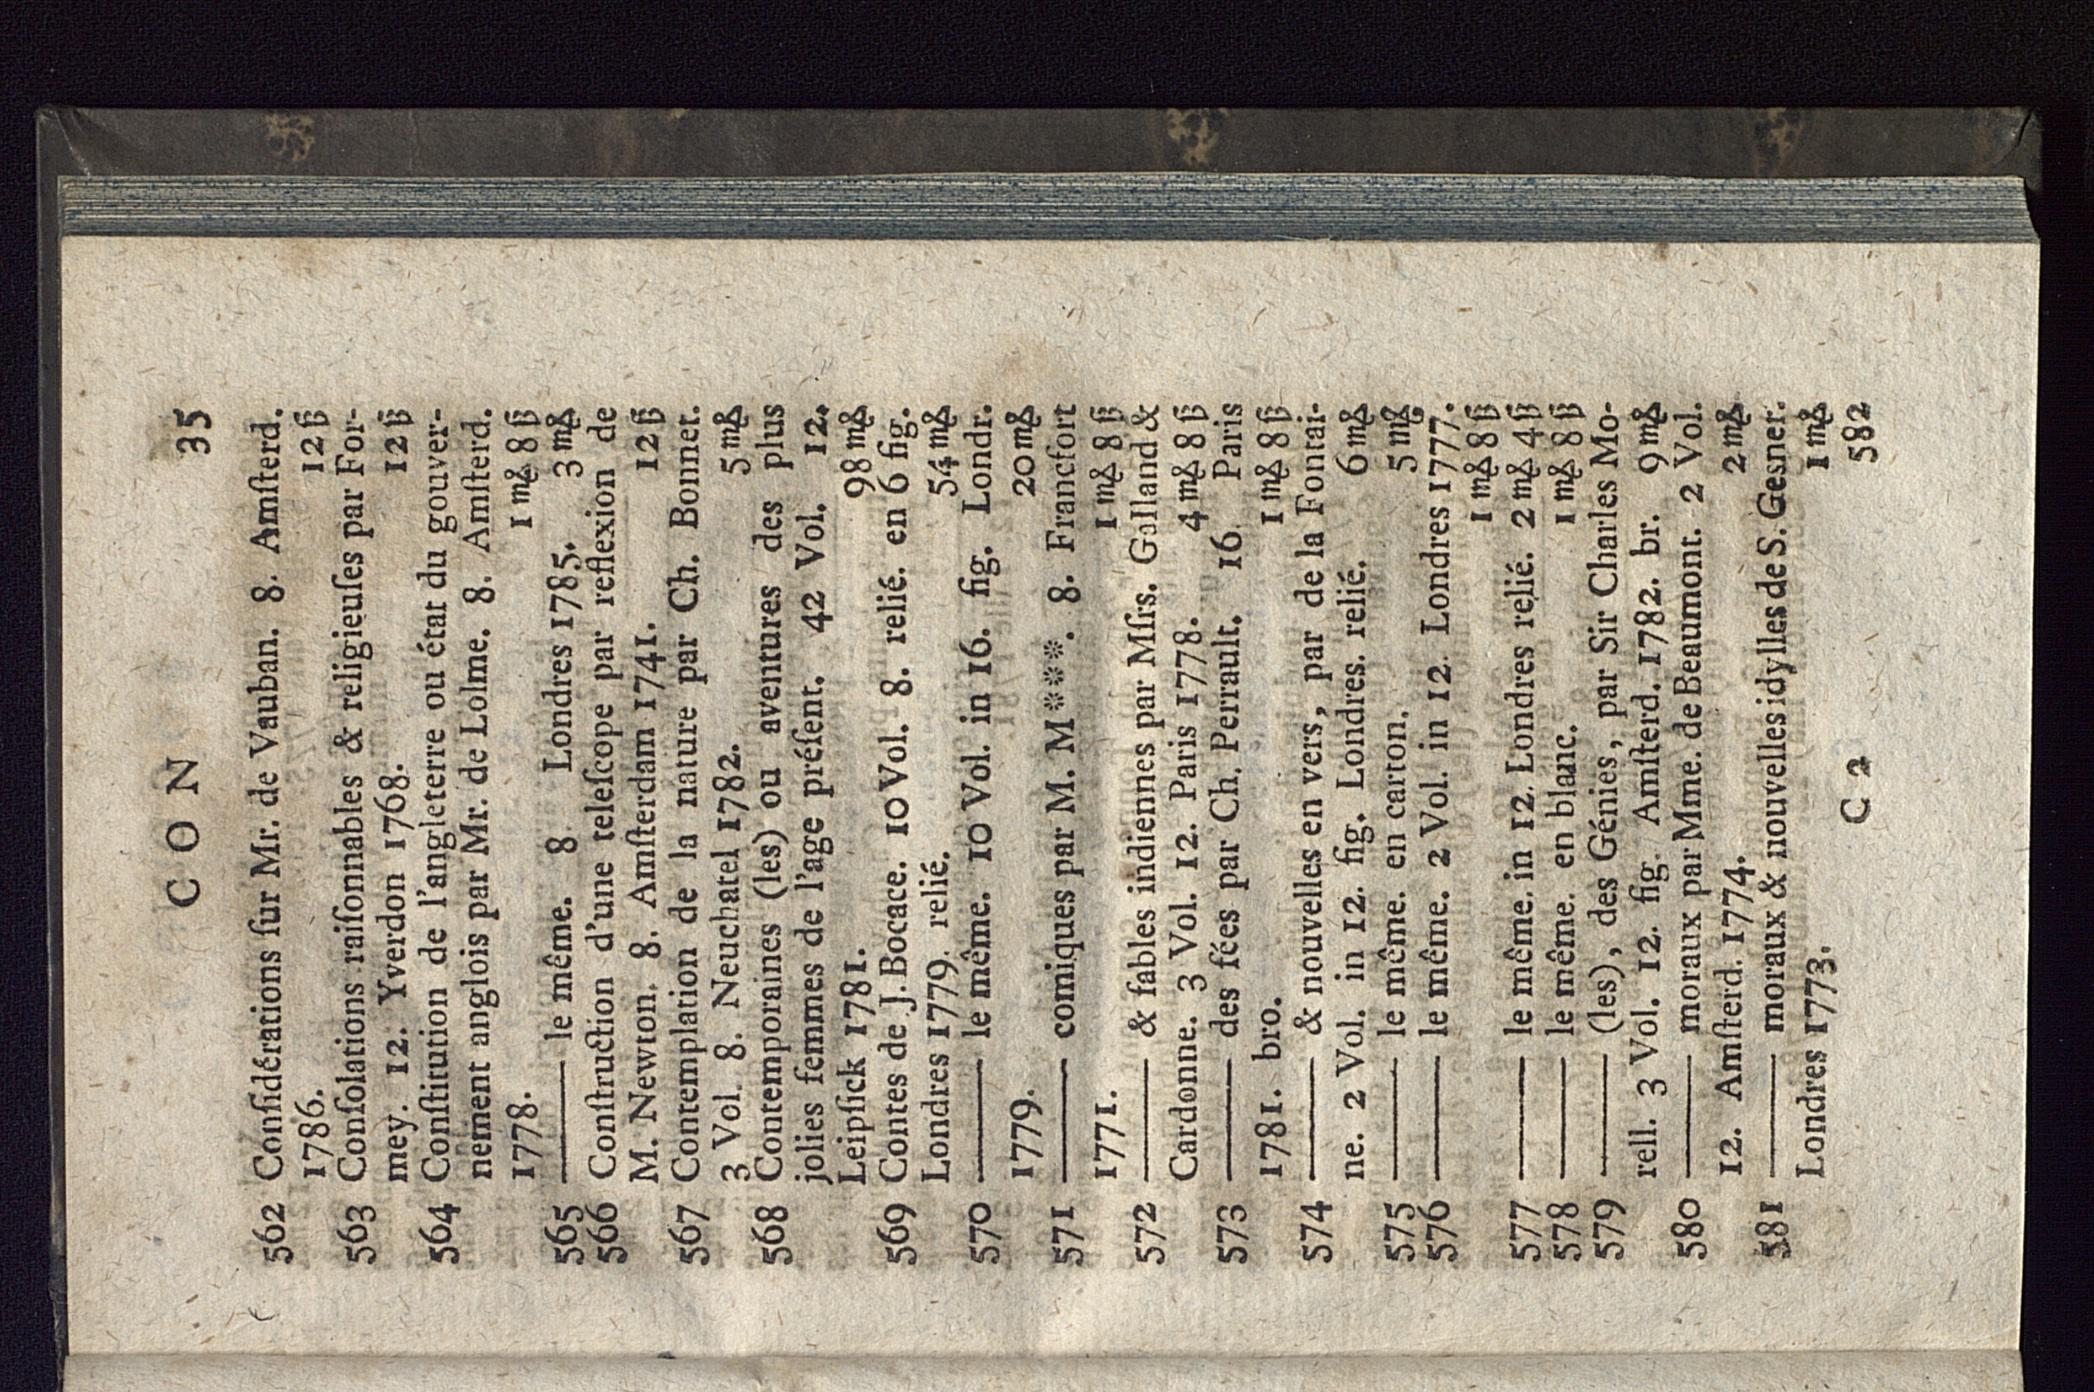 CON 35
562 Conſidérations ſur Mr. de Vauban. 8. Amſterd.
1786. 12 ß
563 Conſolations raiſonnables & religieuſes par For-
mey. 12. Yverdon 1768. 12 ß
564 Conſtitution de l'angleterre ou état du gouver-
nement anglois par Mr. de Lolme. 8. Amſterd.
1778. 1 m₰ 8 ß
565 —— le même. 8 Londres 1785. 3 m₰
566 Conſtruction d'une teleſcope par reflexion de
M. Newton. 8. Amſterdam 1741. 12 ß
567 Contemplation de la nature par Ch. Bonnet.
3 Vol. 8. Neuchatel 1782. 5 m₰
568 Contemporaines (les) ou aventures des plus
jolies femmes de l'age préſent. 42 Vol. 12.
Leipſick 1781. 98 m₰
569 Contes de J. Bocace. 10 Vol. 8. relié. en 6 fig.
Londres 1779. relié. 54 m₰
570 —— le même. 10 Vol. in 16. fig. Londr.
1779. 20 m₰
571 —— comiques par M. M****. 8. Francfort
1771. 1 m₰ 8 ß
572 —— & fables indiennes par Mſrs. Galland &
Cardonne. 3 Vol. 12. Paris 1778. 4 m₰ 8 ß
573 —— des fées par Ch. Perrault. 16 Paris
1781. bro. 1 m₰ 8 ß
574 —— & nouvelles en vers, par de la Fontai-
ne. 2 Vol. in 12. fig. Londres. relié. 6 m₰
575 —— le même. en carton. 5 m₰
576 —— le même. 2 Vol. in 12. Londres 1777.
1 m₰ 8 ß
577 —— le même. in 12. Londres relié. 2 m₰ 4 ß
578 —— le même. en blanc. 1 m₰ 8 ß
579 —— (les), des Génies, par Sir Charles Mo-
rell. 3 Vol. 12. fig. Amſterd. 1782. br. 9 m₰
580 —— moraux par Mme. de Beaumont. 2 Vol.
12. Amſterd. 1774. 2 m₰
581 —— moraux & nouvelles idylles de S. Gesner.
Londres 1773. 1 m₰
C 2 582